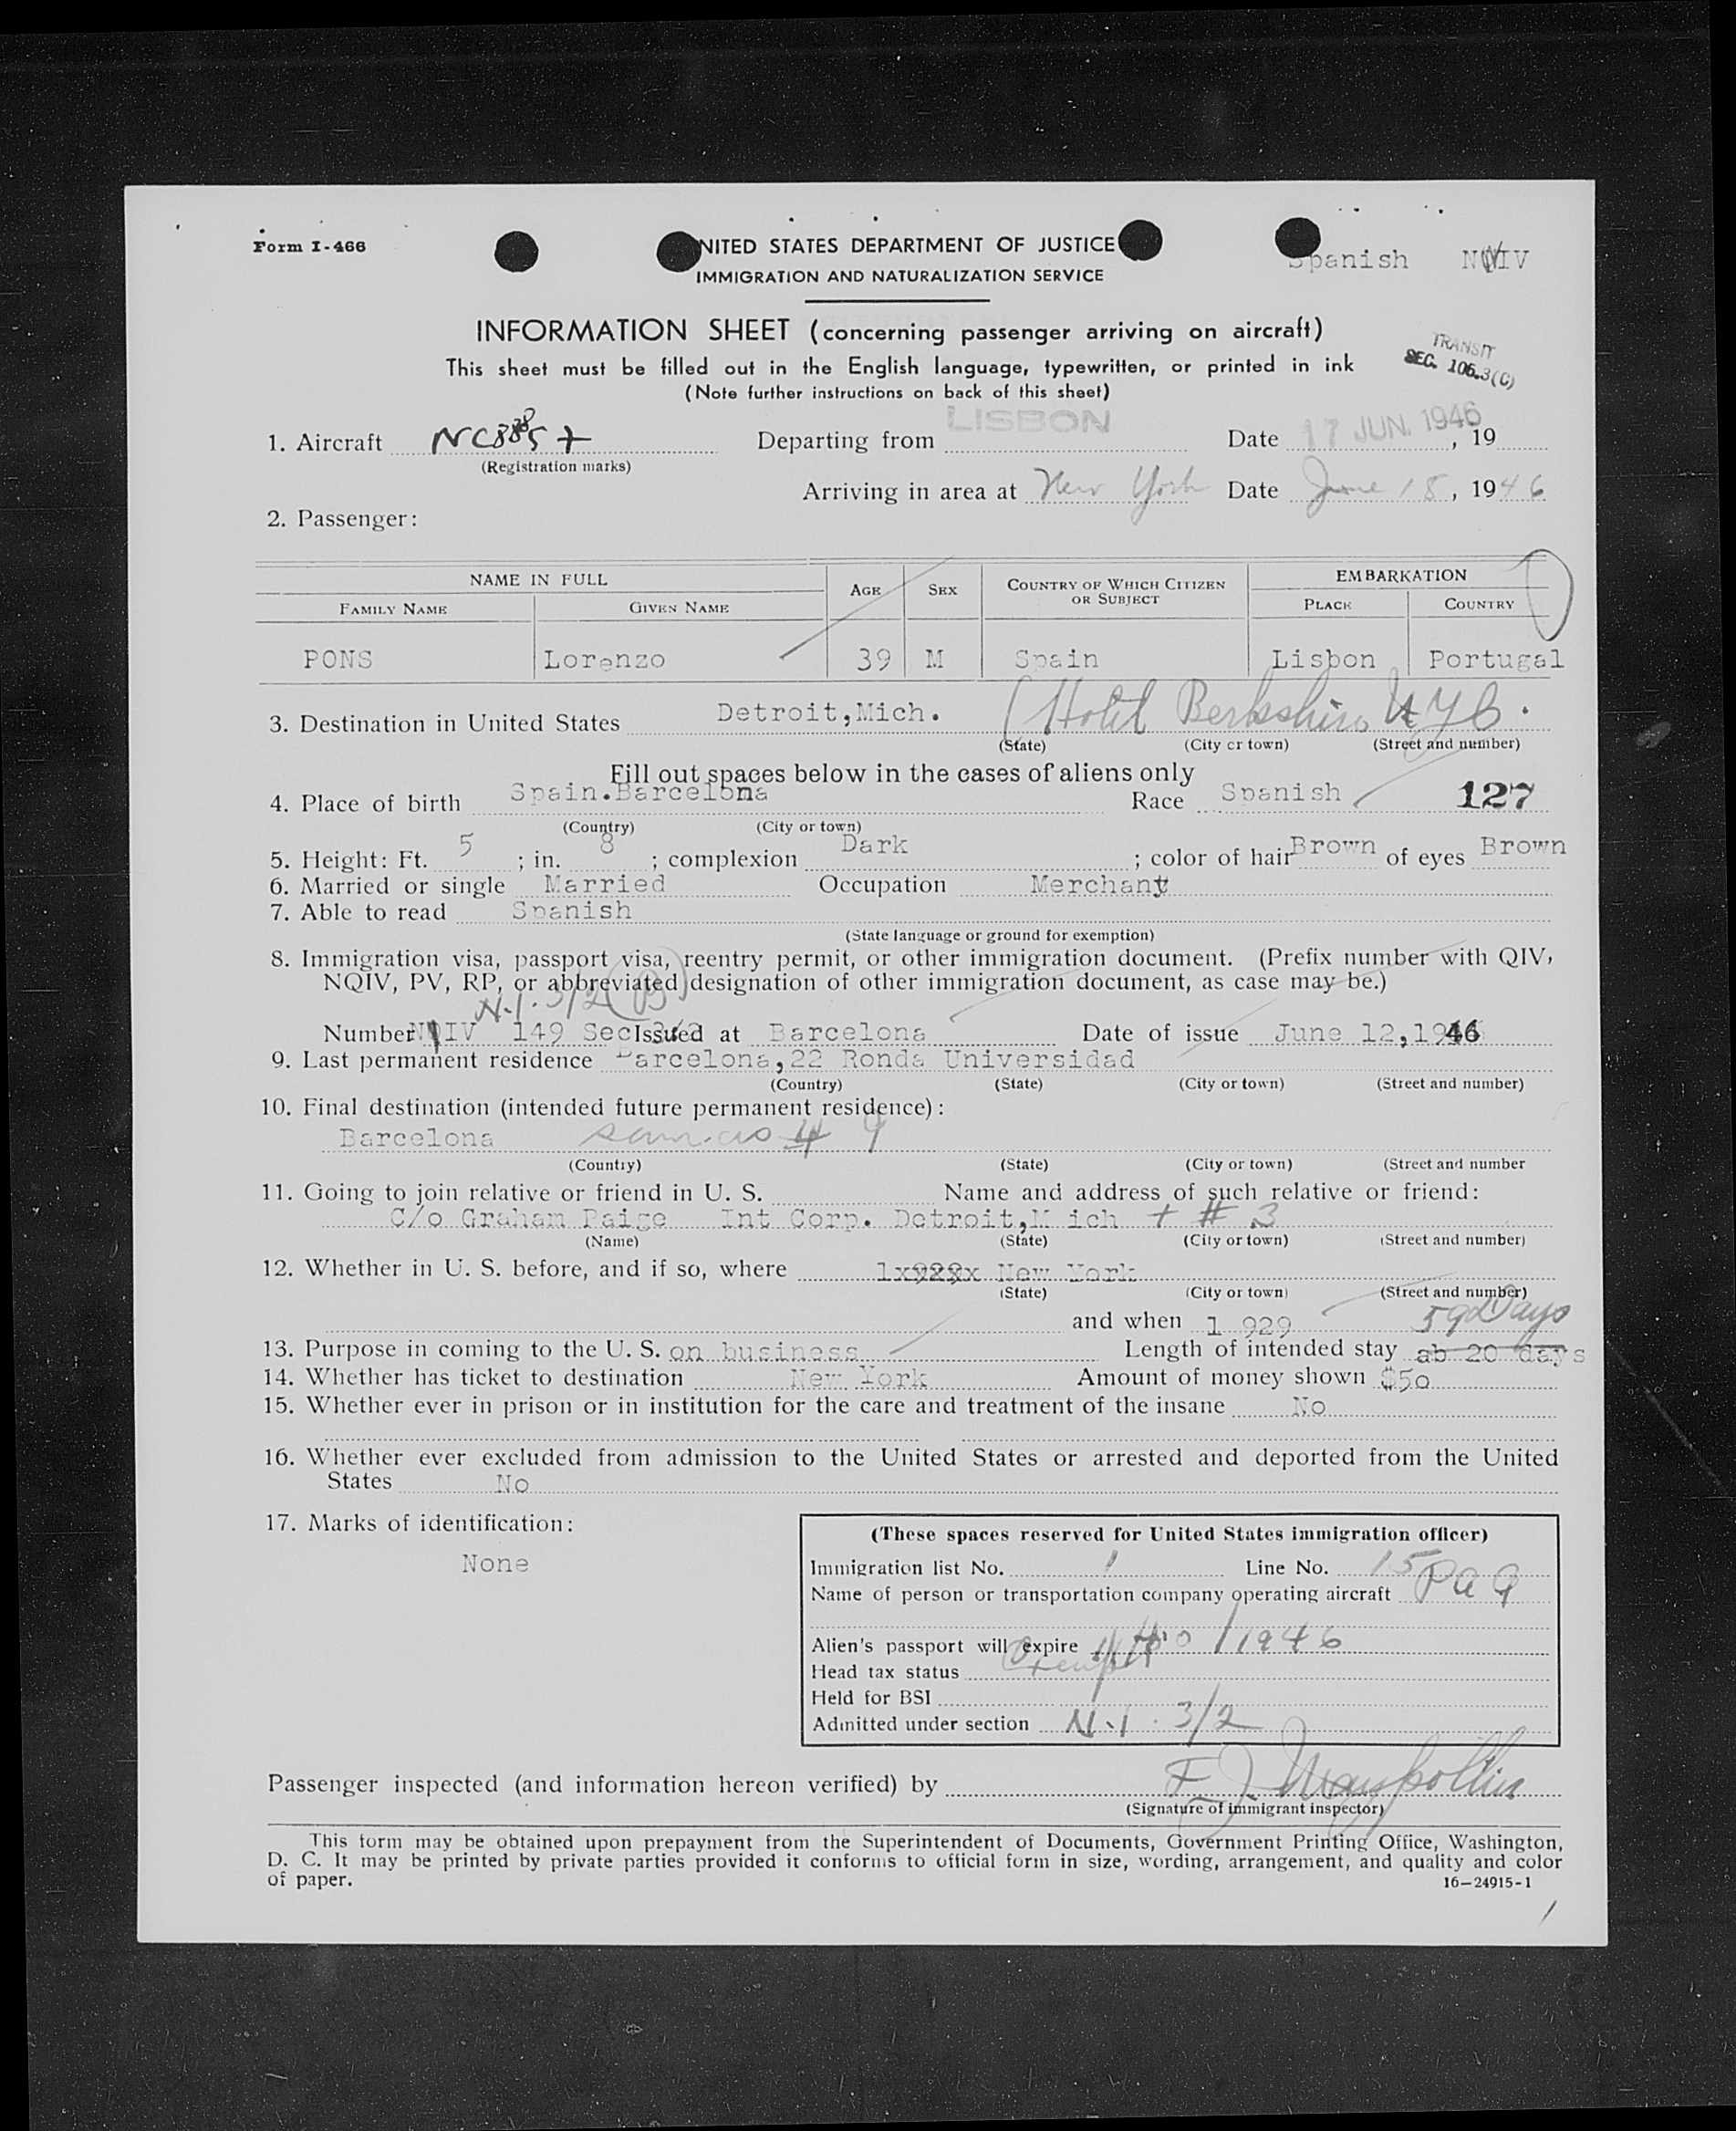 Form I-466
NITED STATES DEPARTMENT OF JUSTICE
IMMIGRATION AND NATURALIZATION SERVICE
Spanish
INFORMATION SHEET (concerning passenger arriving on aircraft)
This sheet must be filled out in the English language, typewritten, or printed in ink
(Note further instructions on back of this sheet)
TRANSIT
SEC. 106.3(C)
1. Aircraft Departing from LISBON Date 17 JUN. 1946, 19
(Registration marks)
Arriving in area at New York Date June 18, 1946
2. Passenger:
NAME IN FULL AGE SEX COUNTRY OF WHICH CITIZEN OR SUBJECT EMBARKATION
FAMILY NAME GIVEN NAME PLACE COUNTRY
PONS Lorenzo 39 M Spain Lisbon Portugal
3. Destination in United States Detroit,Mich. (Hotel Berkshire NYC.
(State) (City or town) (Street and number)
Fill out spaces below in the cases of aliens only
4. Place of birth Spain.Barcelona Race Spanish 127
(Country) (City or town)
5. Height: Ft. 5 ; in. 8 ; complexion Dark ; color of hair Brown of eyes Brown
6. Married or single Married Occupation Merchant
7. Able to read Spanish
(State language or ground for exemption)
8. Immigration visa, passport visa, reentry permit, or other immigration document. (Prefix number with QIV,
NQIV, PV, RP, or abbreviated designation of other immigration document, as case may be.)
N.I. 3/2 (B)
Number NQIV 149 Sec 3/2 Issued at Barcelona Date of issue June 12,1946
9. Last permanent residence Barcelona,22 Ronda Universidad
(Country) (State) (City or town) (Street and number)
10. Final destination (intended future permanent residence):
Barcelona same as # 9
(Country) (State) (City or town) (Street and number
11. Going to join relative or friend in U. S. Name and address of such relative or friend:
C/o Graham Paige Int Corp. Detroit,M ich + # 3
(Name) (State) (City or town) (Street and number)
12. Whether in U. S. before, and if so, where New York
(State) (City or town) (Street and number)
and when 1 929 59 Days
13. Purpose in coming to the U. S. on business Length of intended stay ab 20 days
14. Whether has ticket to destination New York Amount of money shown $50
15. Whether ever in prison or in institution for the care and treatment of the insane No
16. Whether ever excluded from admission to the United States or arrested and deported from the United
States No
17. Marks of identification:
None
(These spaces reserved for United States immigration officer)
Immigration list No. 1 Line No. 15
Name of person or transportation company operating aircraft
Alien's passport will expire 1946
Head tax status Exempt
Held for BSI
Admitted under section N.I. 3/2
Passenger inspected (and information hereon verified) by
(Signature of immigrant inspector)
This form may be obtained upon prepayment from the Superintendent of Documents, Government Printing Office, Washington,
D. C. It may be printed by private parties provided it conforms to official form in size, wording, arrangement, and quality and color
of paper.
16—24915-1